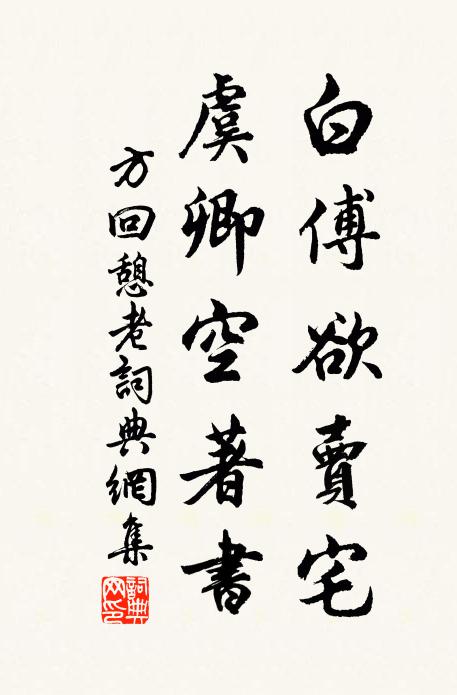 白傅欲賣宅
虞卿空著書
方回憩老詞典網集
詞典網印